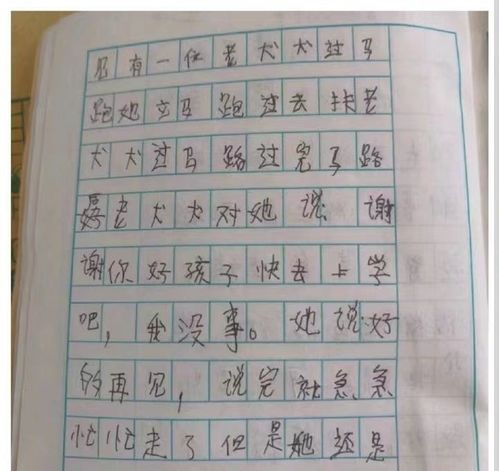 见有一位老犬犬过马
跑她立马跑过去扶老
犬犬过马路过完马路
老犬犬对她说:谢
谢你好孩子快去上学
吧,我没事。她说:好
的再见,说完就急急
忙忙走了但是她还是